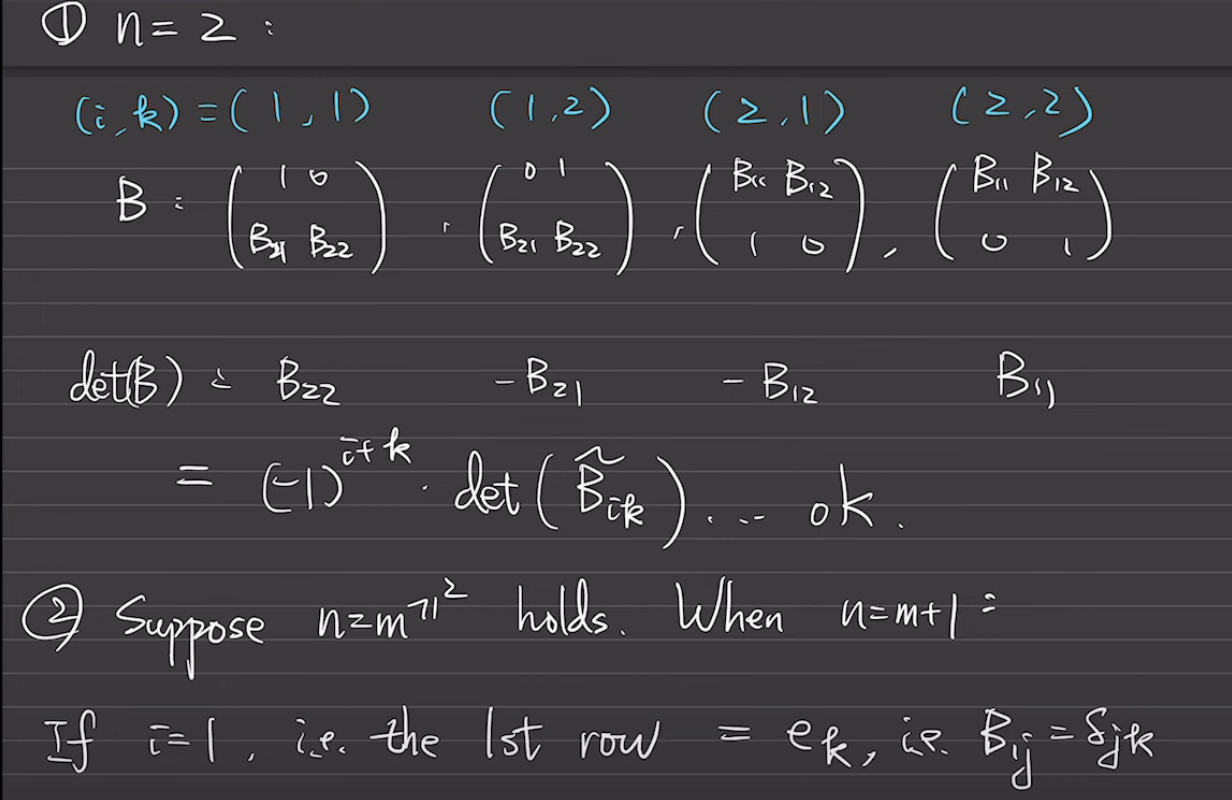 ① n = 2 :
(i, k) = (1, 1) (1, 2) (2, 1) (2, 2)
B : ( 1 0 ; B21 B22 ) , ( 0 1 ; B21 B22 ) , ( B11 B12 ; 1 0 ) , ( B11 B12 ; 0 1 )
det(B) : B22 -B21 -B12 B11
= (-1)^{i+k} · det( B̃ik ) ... ok.
② Suppose n=m≥2 holds. When n=m+1 :
If i=1, i.e. the 1st row = ek, i.e. B1j = δjk